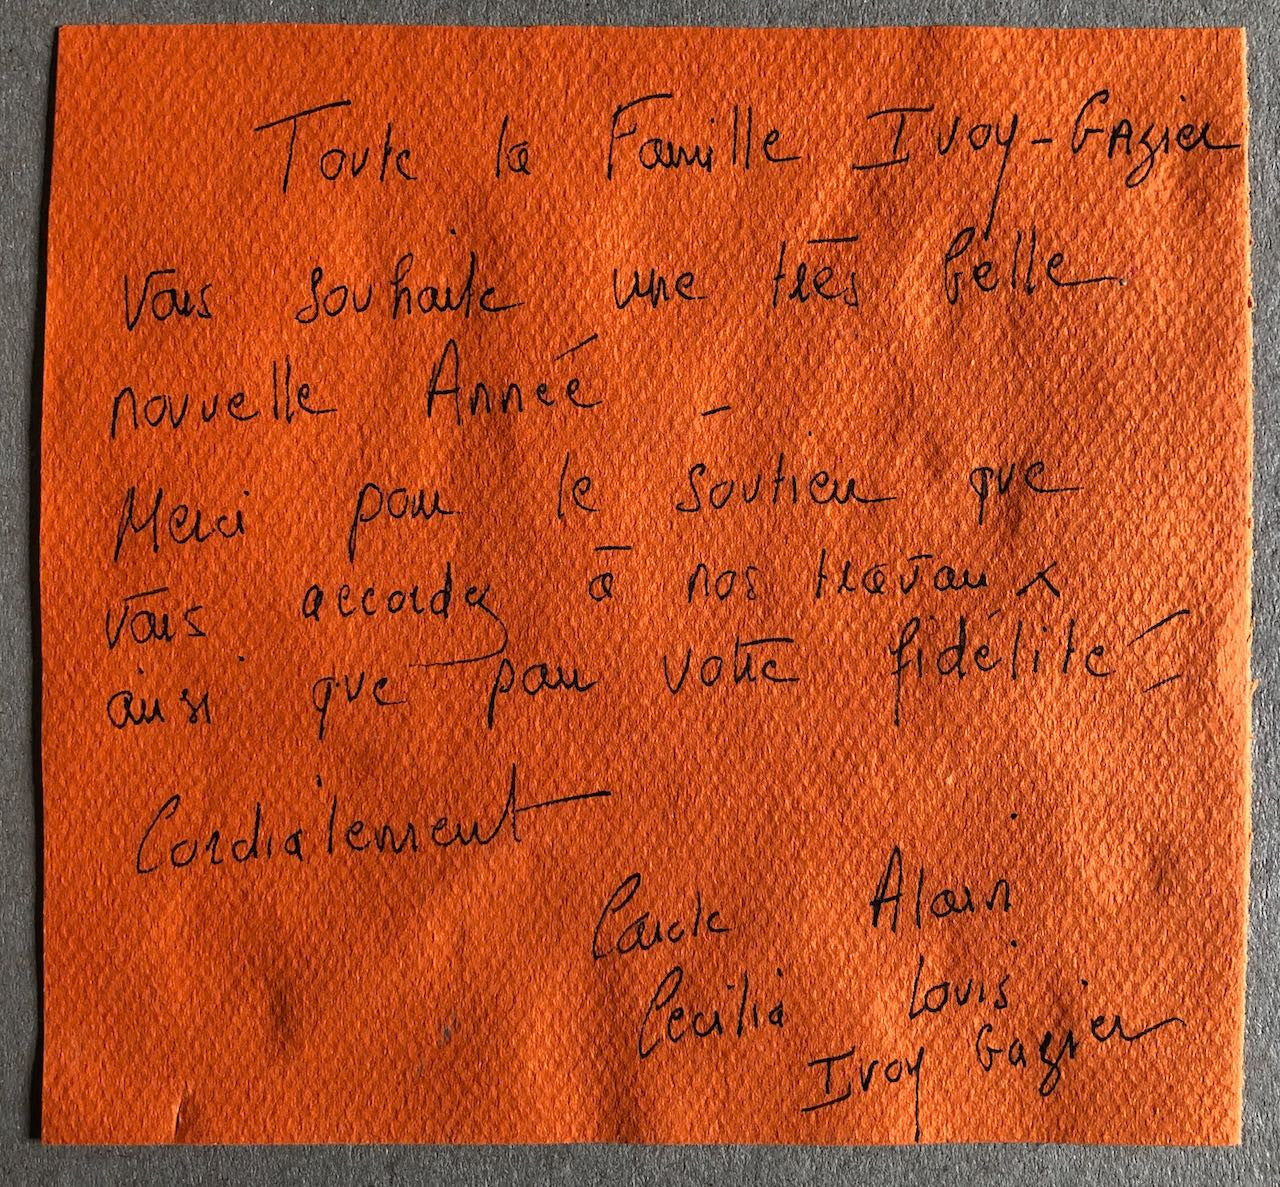 Toute la Famille Ivoy-Gazier
Vous souhaite une très belle
nouvelle Année
Merci pour le soutien que
vous accordez à nos travaux
ainsi que pour votre fidélité
Cordialement
Carole Alain
Cecilia Louis
Ivoy Gazier